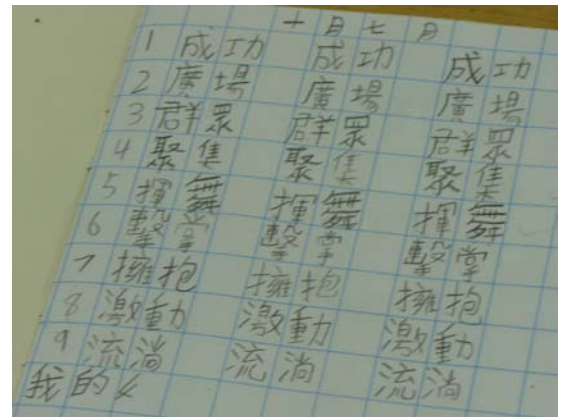 十月七日
1 成功 成功 成功
2 廣場 廣場 廣場
3 群眾 群眾 群眾
4 聚集 聚集 聚集
5 揮舞 揮舞 揮舞
6 擊掌 擊掌 擊掌
7 擁抱 擁抱 擁抱
8 激動 激動 激動
9 流淌 流淌 流淌
我的